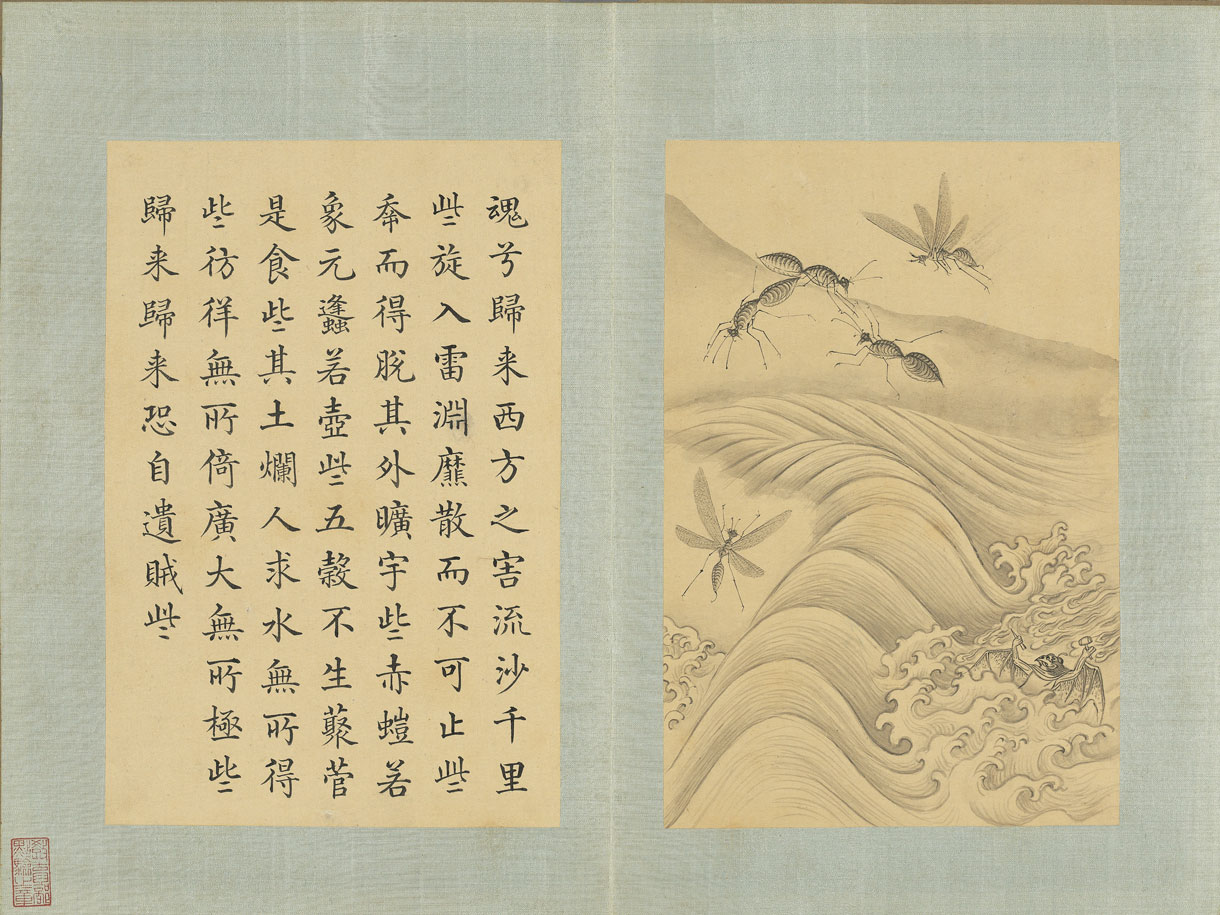 魂兮歸来西方之害流沙千里
些旋入雷淵靡散而不可止些
幸而得脫其外曠宇些赤螘若
象元蠭若壺些五穀不生藂菅
是食些其土爛人求水無所得
些彷徉無所倚廣大無所極些
歸来歸来恐自遺賊些